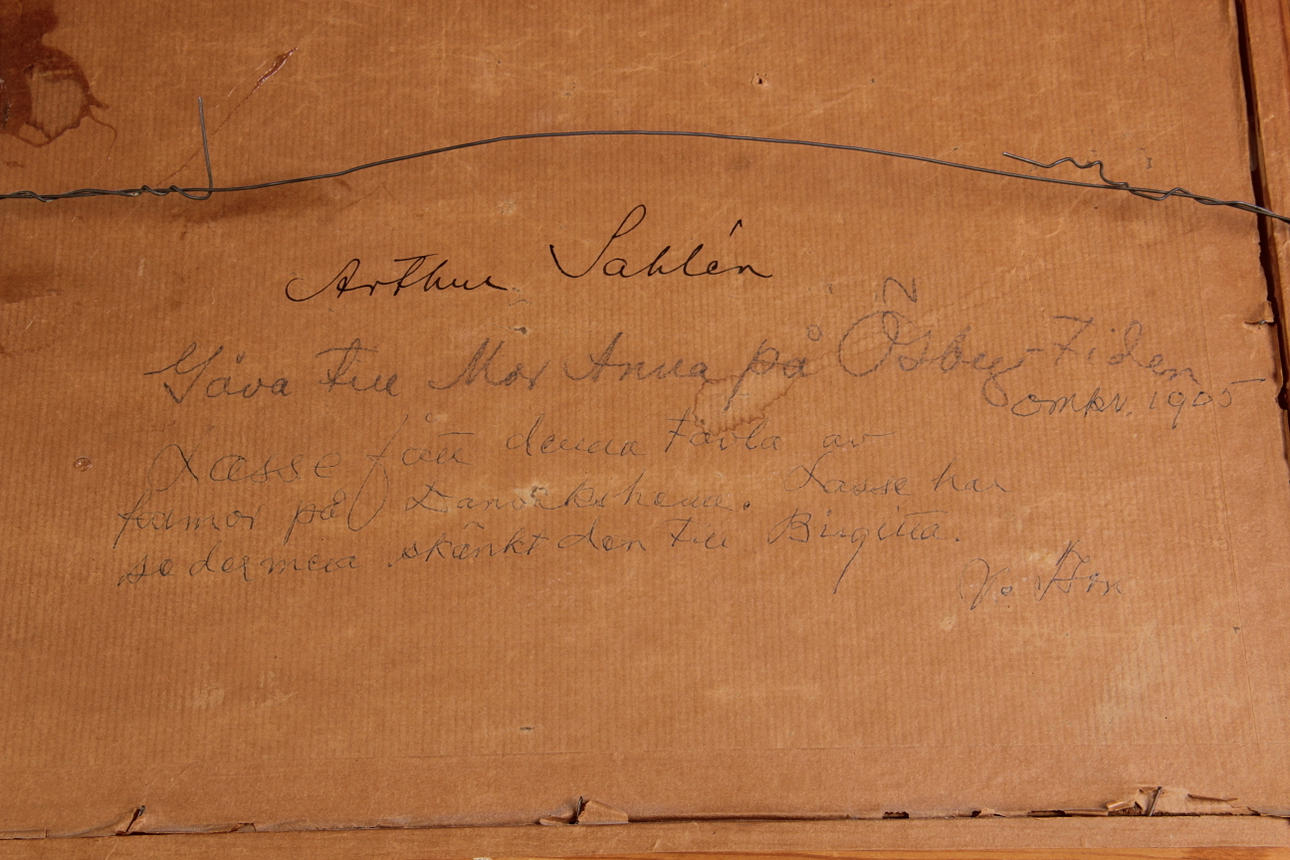 Arthur Sahlén
Gåva till Mor Anna på Ösby-Tiden
omkr. 1905
Lasse fått denna tavla av
farmor på Danvikshem. Lasse har
sedermera skänkt den till Birgitta.